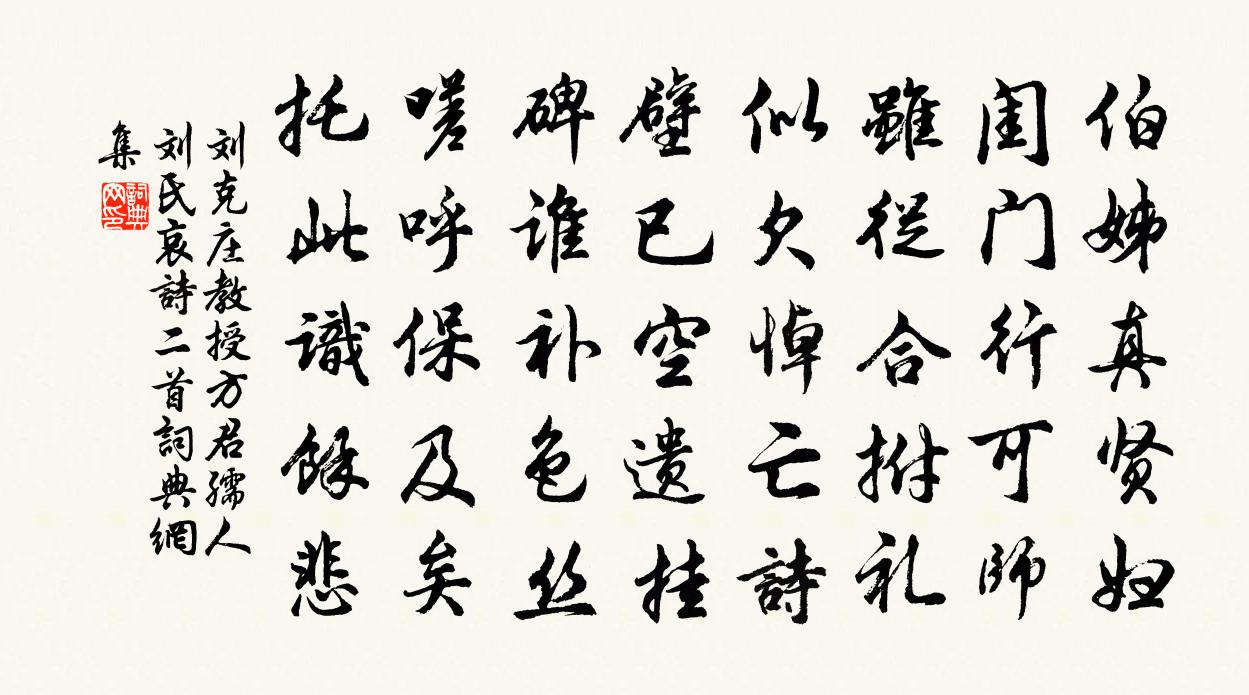 伯姊真贤妇
闺门行可师
雖從合拊礼
似欠悼亡詩
壁已空遗挂
碑谁补色丝
嗟呼保及矣
托此識餘悲
刘克庄教授方君孺人
刘氏哀詩二首詞典網
集
詞典网印